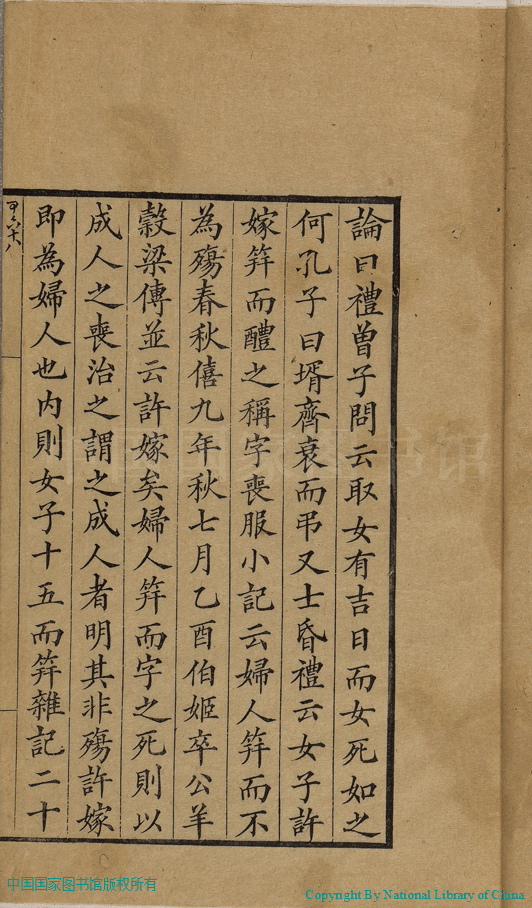 論曰禮曾子問云取女有吉日而女死如之
何孔子曰壻齊衰而弔又士昏禮云女子許
嫁笄而醴之稱字喪服小記云婦人笄而不
為殤春秋僖九年秋七月乙酉伯姬卒公羊
穀梁傳並云許嫁矣婦人笄而字之死則以
成人之喪治之謂之成人者明其非殤許嫁
即為婦人也内則女子十五而笄雜記二十
中国国家图书馆版权所有
Copyright By National Library of China